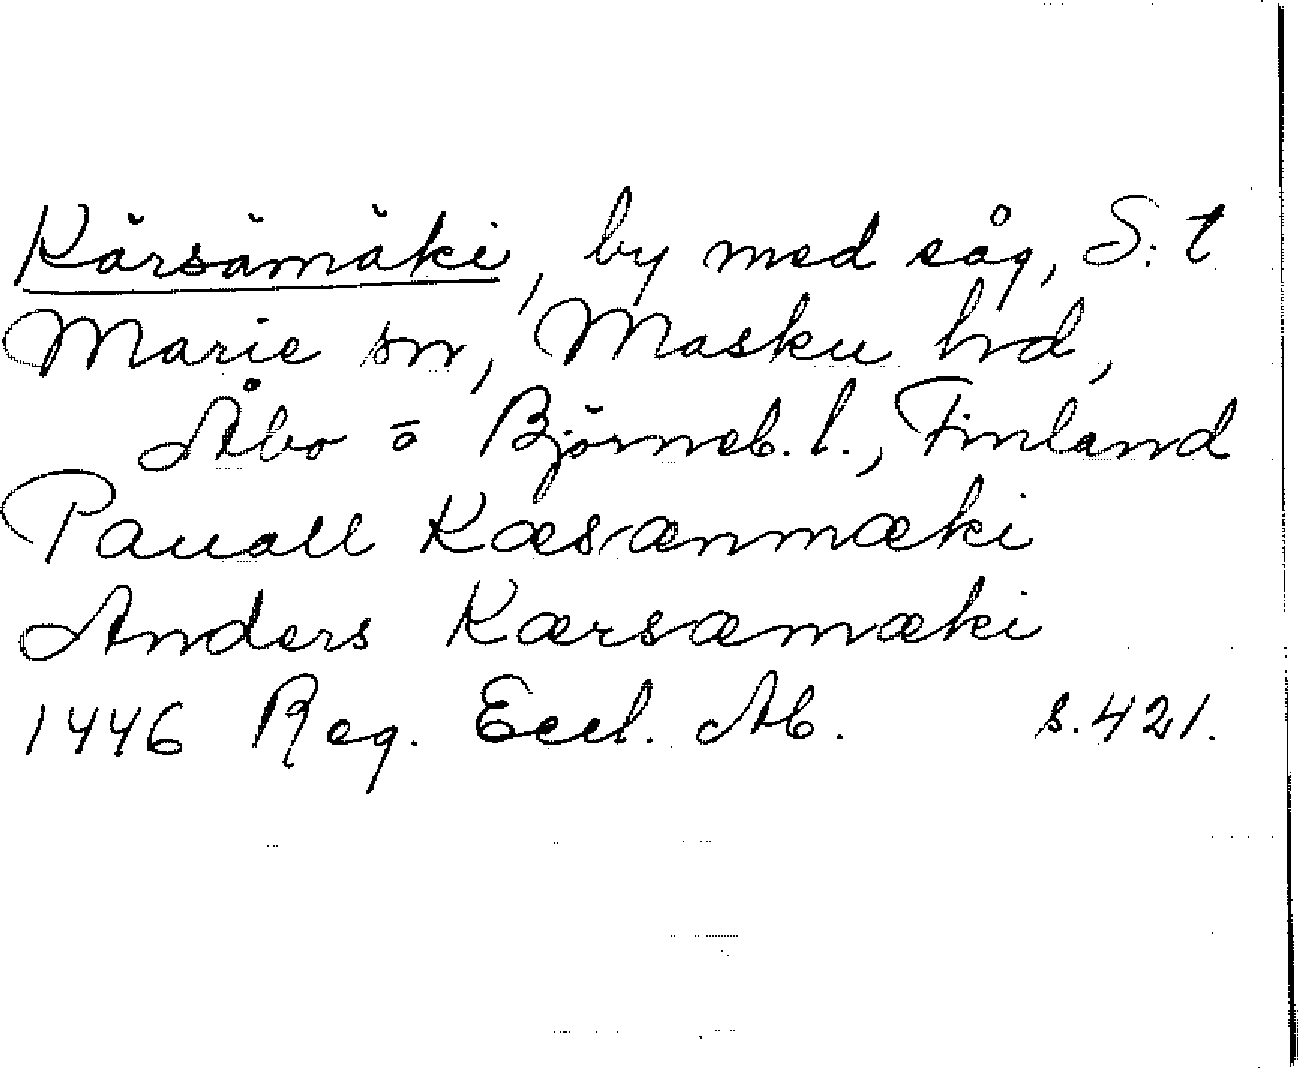 Kärsämäki, by med såg, S:t
Marie sn, Masku hd,
Åbo o Björneb. l., Finland
Pauall Kæsænmæki
Anders Kærsæmæki
1446 Reg. Eccl. Ab. s. 421.